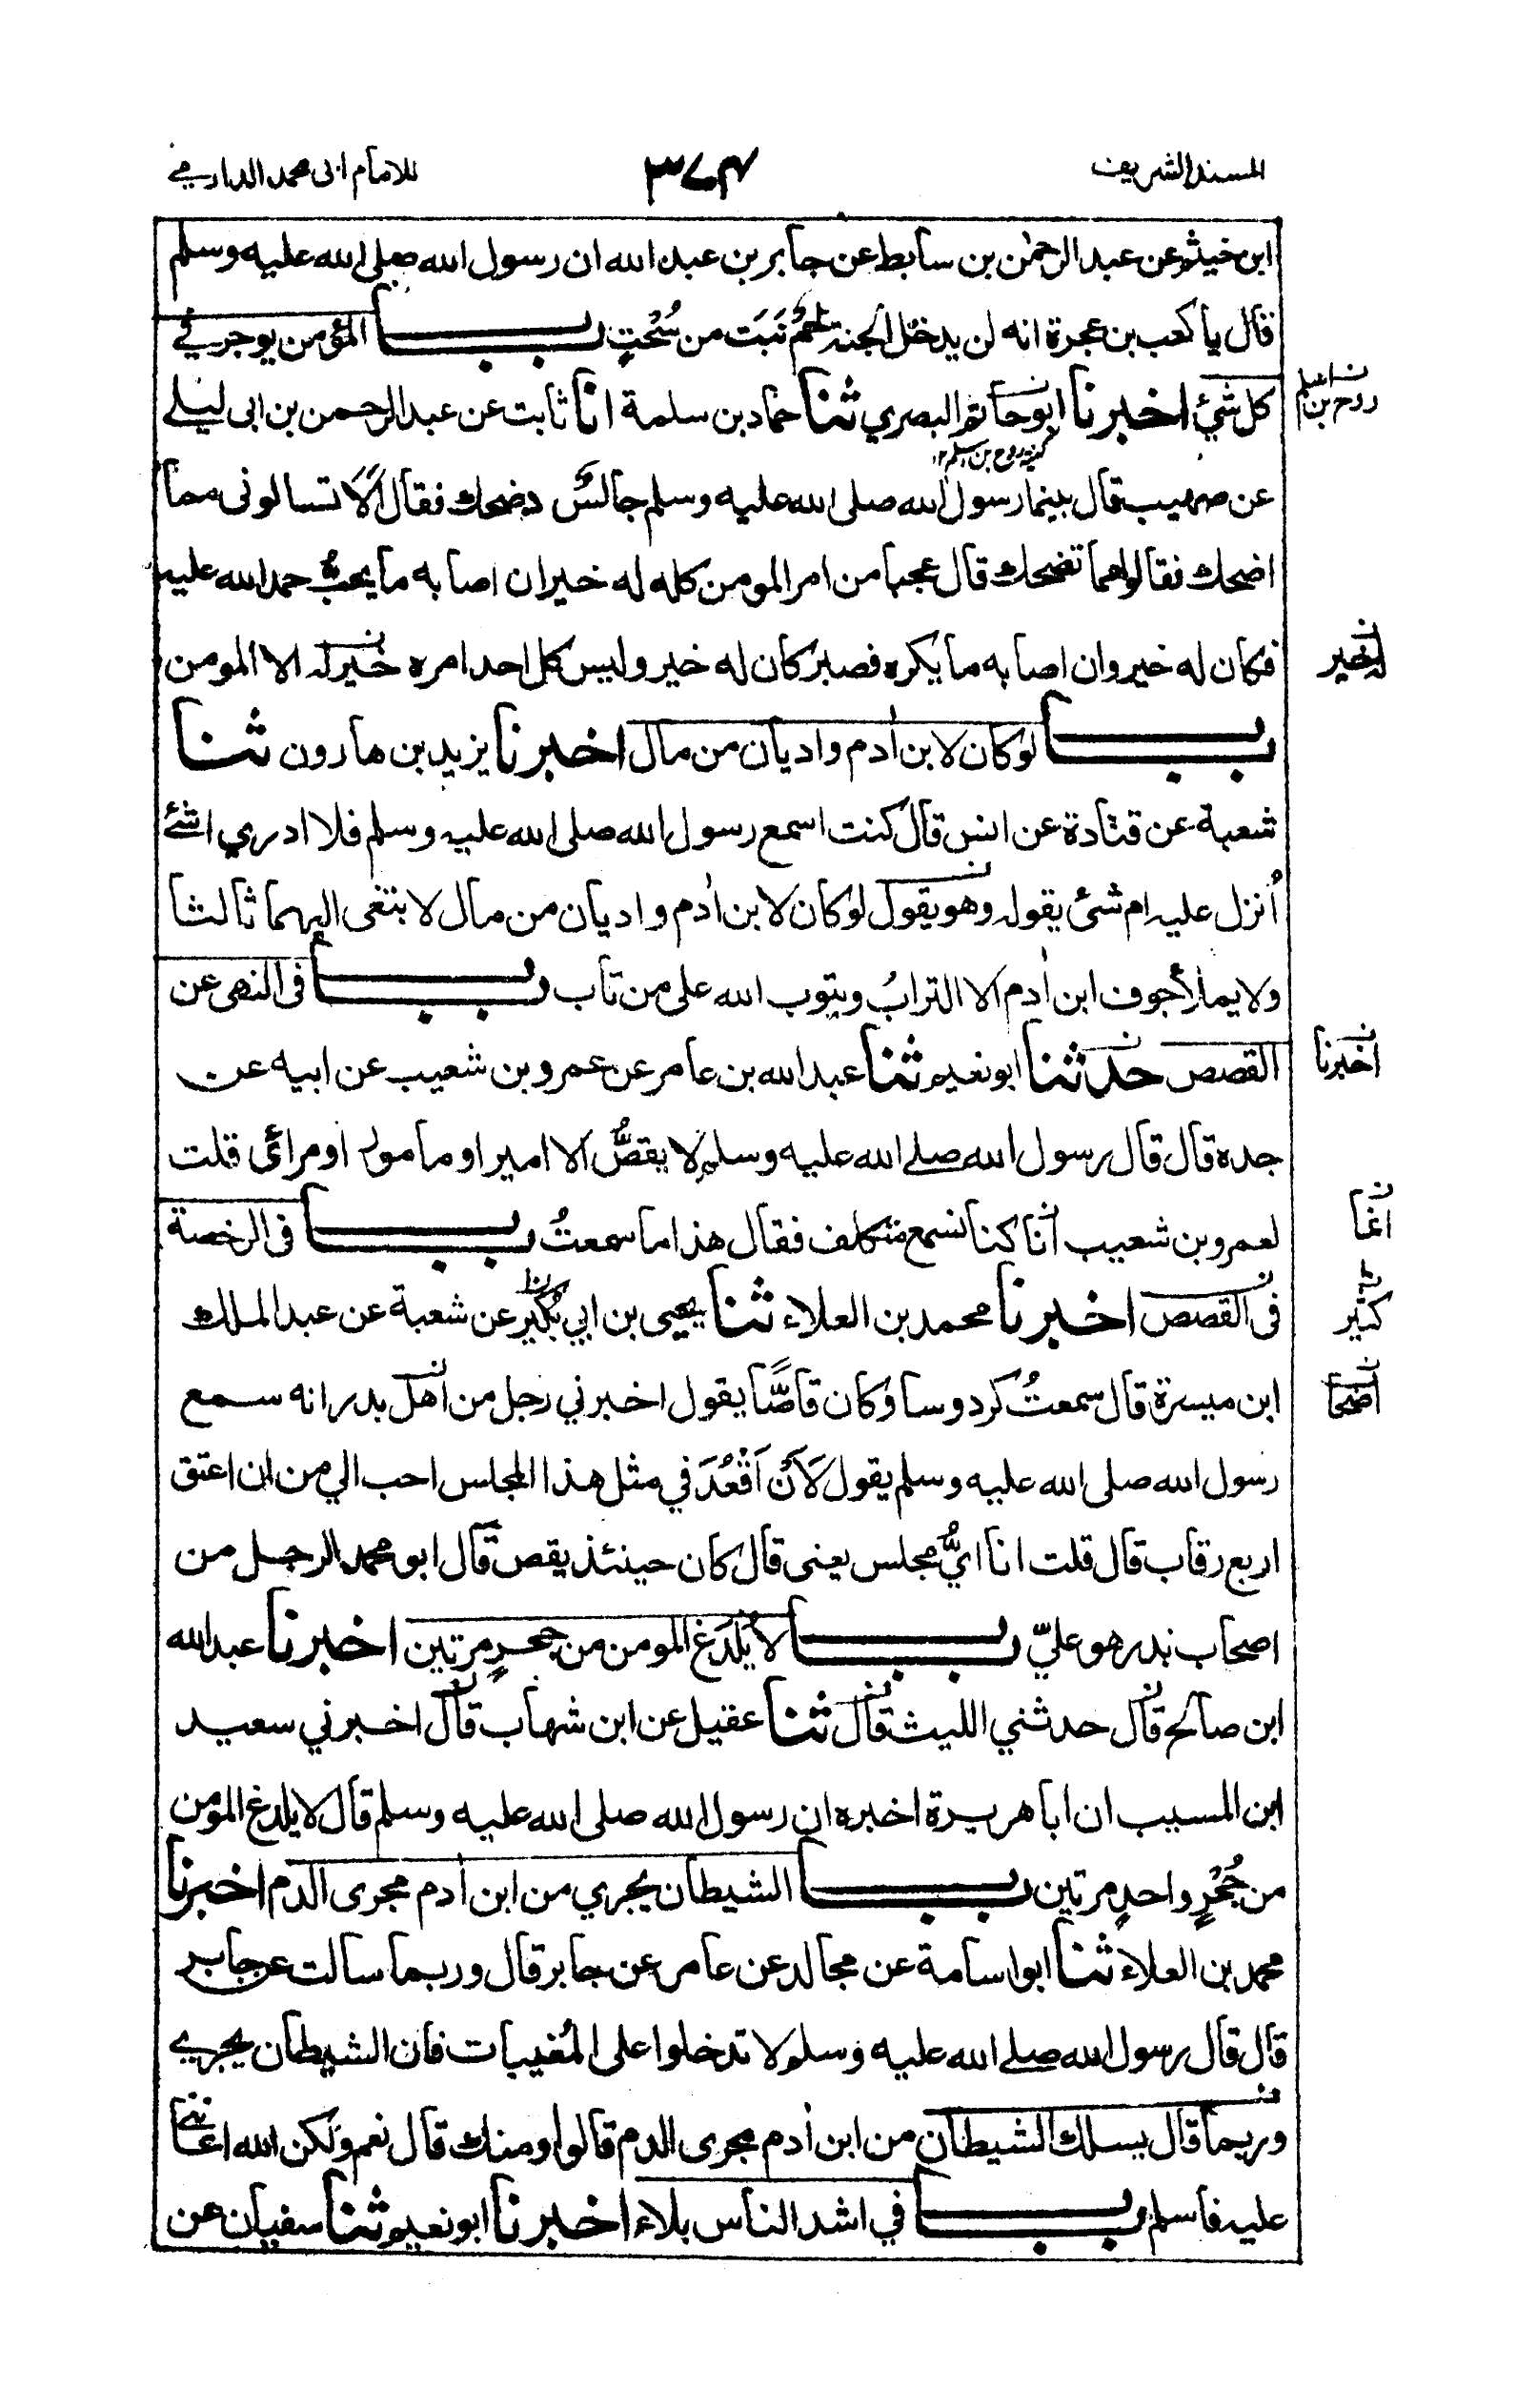 المسند الشريف ٣٧٤ للامام ابى محمد الدارمي
ابن خيثم عن عبد الرحمٰن بن سابط عن جابر بن عبد الله ان رسول الله صلى الله عليه وسلم
قال يا كعب بن عجرة انه لن يدخل الجنة لحمٌ نَبَت من سُحْتٍ باب المؤمن يوجر في
كل شئ اخبرنا ابو حاتم البصري ثنا حماد بن سلمة انا ثابت عن عبد الرحمن بن ابى ليلے
كنيته روح بن اسلم ١٢
عن صهيب قال بينما رسول الله صلى الله عليه وسلم جالسٌ د ضحك فقال اَلَا تسالونى مما
اضحك فقالوا مما تضحك قال عجبا من امر المومن كله له خير ان اصابه ما يحبُّ حمد الله عليه
فكان له خير وان اصابه ما يكره فصبر كان له خير وليس كل احد امره خير له الا المومن
باب لو كان لابن اٰدم واديان من مال اخبرنا يزيد بن هارون ثنا
شعبة عن قتادة عن انس قال كنت اسمع رسول الله صلى الله عليه وسلم فلا ادري اشئ
اُنزل عليه ام شئ يقوله وهو يقول لو كان لابن اٰدم واديان من مال لابتغى اليهما ثالثا
ولا يملأ جوف ابن اٰدم الا الترابُ ويتوب الله على من تاب باب فى النهى عن
القصص حدثنا ابو نعيم ثنا عبد الله بن عامر عن عمرو بن شعيب عن ابيه عن
جده قال قال رسول الله صلے الله عليه وسلم لا يقصُّ الا امير او مامور او مرائى قلت
لعمرو بن شعيب انا كنا نسمع متكلف فقال هذا ما سمعتُ باب فى الرخصة
فى القصص اخبرنا محمد بن العلاء ثنا يحيى بن ابي بُكَير عن شعبة عن عبد الملك
ابن ميسرة قال سمعتُ كردوسا وكان قاصًّا يقول اخبرني رجل من اهل بدر انه سمع
رسول الله صلى الله عليه وسلم يقول لَاَنْ اَقْعُدَ في مثل هذا المجلس احب الي من ان اعتق
اربع رقاب قال قلت انا ايُّ مجلس يعنى قال كان حينئذ يقص قال ابو محمد الرجل من
اصحاب بدر هو عليّ باب لا يُلدَغ المومن من جحرٍ مرتين اخبرنا عبد الله
ابن صالح قال حدثني الليث قال ثنا عقيل عن ابن شهاب قال اخبرني سعيد
ابن المسيب ان ابا هريرة اخبره ان رسول الله صلى الله عليه وسلم قال لا يلدغ المومن
من جُحْرٍ واحدٍ مرتين باب الشيطان يجري من ابن اٰدم مجرى الدم اخبرنا
محمد بن العلاء ثنا ابو اسامة عن مجالد عن عامر عن جابر قال وربما سالت عن جابر
قال قال رسول الله صلے الله عليه وسلم لا تدخلوا على المُغيبات فان الشيطان يجرے
وربما قال يسلك الشيطان من ابن اٰدم مجرى الدم قالوا ومنك قال نعم ولكن الله اعاننے
عليه فاسلم باب في اشد الناس بلاء اخبرنا ابو نعيم ثنا سفيان عن
روح بن اسلم
له خير
اخبرنا
انما
كثير
اصحاب